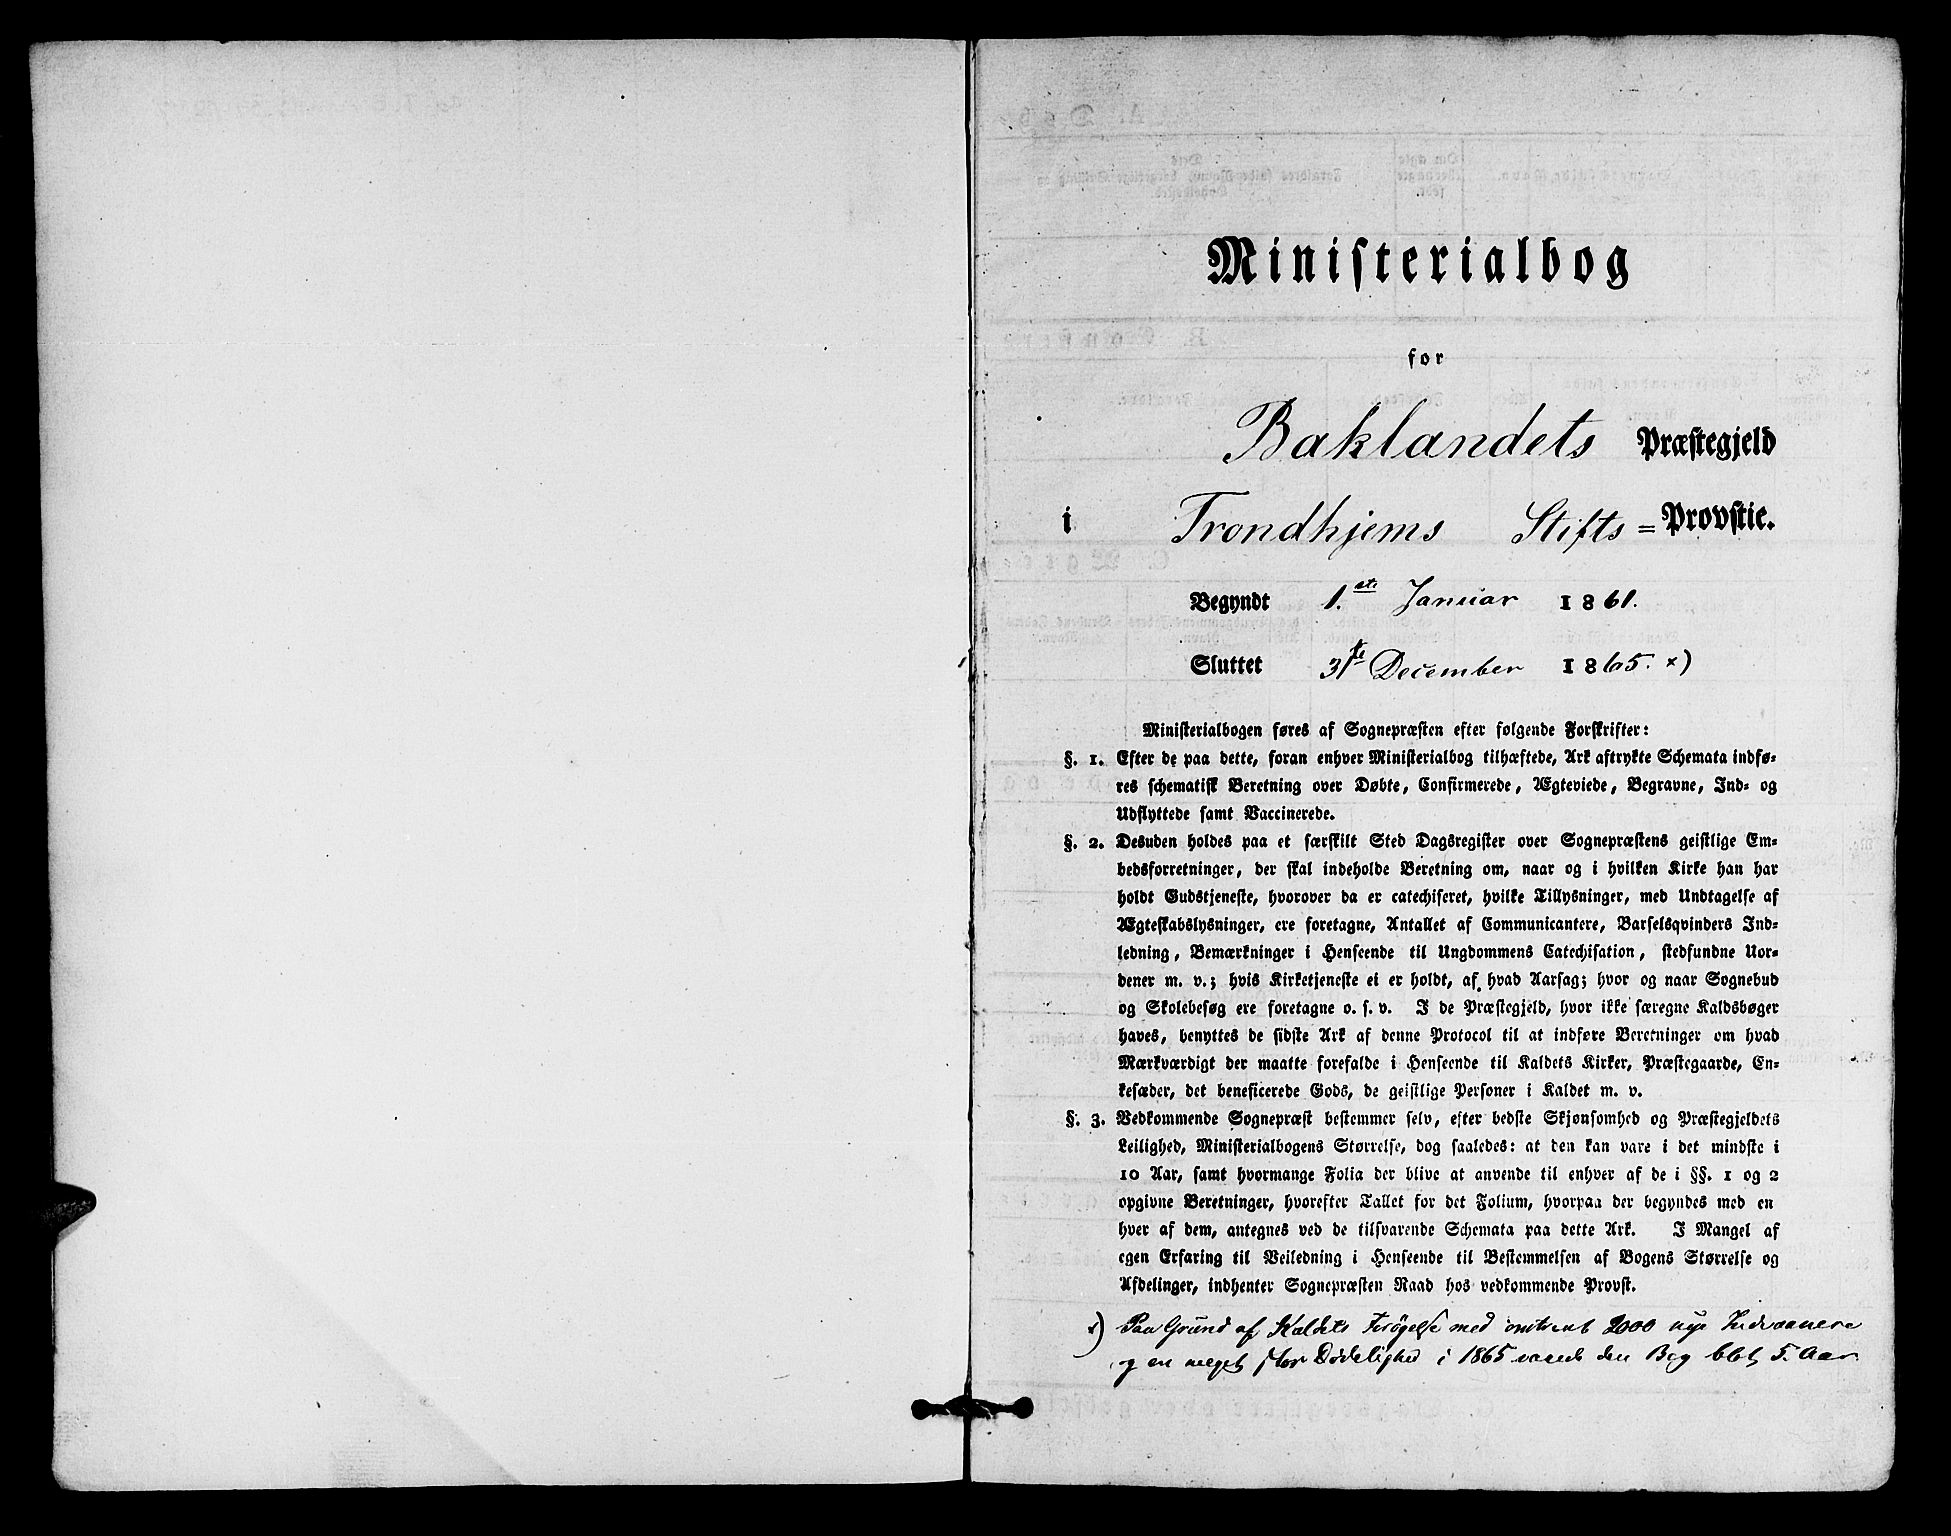 Ministerialbog
for
Baklandets Præstegjeld
i Trondhjems Stifts = Provstie.
Begyndt 1.ste Januar 1861.
Sluttet 31te December 1865. x)
Ministerialbogen føres af Sognepræsten efter følgende Forskrifter:
§. 1. Efter de paa dette, foran enhver Ministerialbog tilhæftede, Ark aftrykte Schemata indfø-
res schematisk Beretning over Døbte, Confirmerede, Ægteviede, Begravne, Ind- og
Udflyttede samt Vaccinerede.
§. 2. Desuden holdes paa et særskilt Sted Dagsregister over Sognepræstens geistlige Em-
bedsforretninger, der skal indeholde Beretning om, naar og i hvilken Kirke han har
holdt Gudstjeneste, hvorover da er catechiseret, hvilke Tillysninger, med Undtagelse af
Ægteskabslysninger, ere foretagne, Antallet af Communicantere, Barselsqvinders Ind-
ledning, Bemærkninger i Henseende til Ungdommens Catechisation, stedfundne Uor-
dener m. v.; hvis Kirketjeneste ei er holdt, af hvad Aarsag; hvor og naar Sognebud
og Skolebesøg ere foretagne o. s. v. I de Præstegjeld, hvor ikke særegne Kaldsbøger
haves, benyttes de sidste Ark af denne Protocol til at indføre Beretninger om hvad
Mærkværdigt der maatte forefalde i Henseende til Kaldets Kirker, Præstegaarde, En-
kesæder, det beneficerede Gods, de geistlige Personer i Kaldet m. v.
§. 3. Vedkommende Sognepræst bestemmer selv, efter bedste Skjønsomhed og Præstegjeldets
Leilighed, Ministerialbogens Størrelse, dog saaledes: at den kan vare i det mindste i
10 Aar, samt hvormange Folia der blive at anvende til enhver af de i §§. 1 og 2
opgivne Beretninger, hvorefter Tallet for det Folium, hvorpaa der begyndes med en
hver af dem, antegnes ved de tilsvarende Schemata paa dette Ark. I Mangel af
egen Erfaring til Veiledning i Henseende til Bestemmelsen af Bogens Størrelse og
Afdelinger, indhenter Sognepræsten Raad hos vedkommende Provst.
x) Paa Grund af Kaldets Forøgelse med omtrent 2000 nye Indvaanere
og en meget stor Dødelighed i 1865 varede den Bog blot 5. Aar